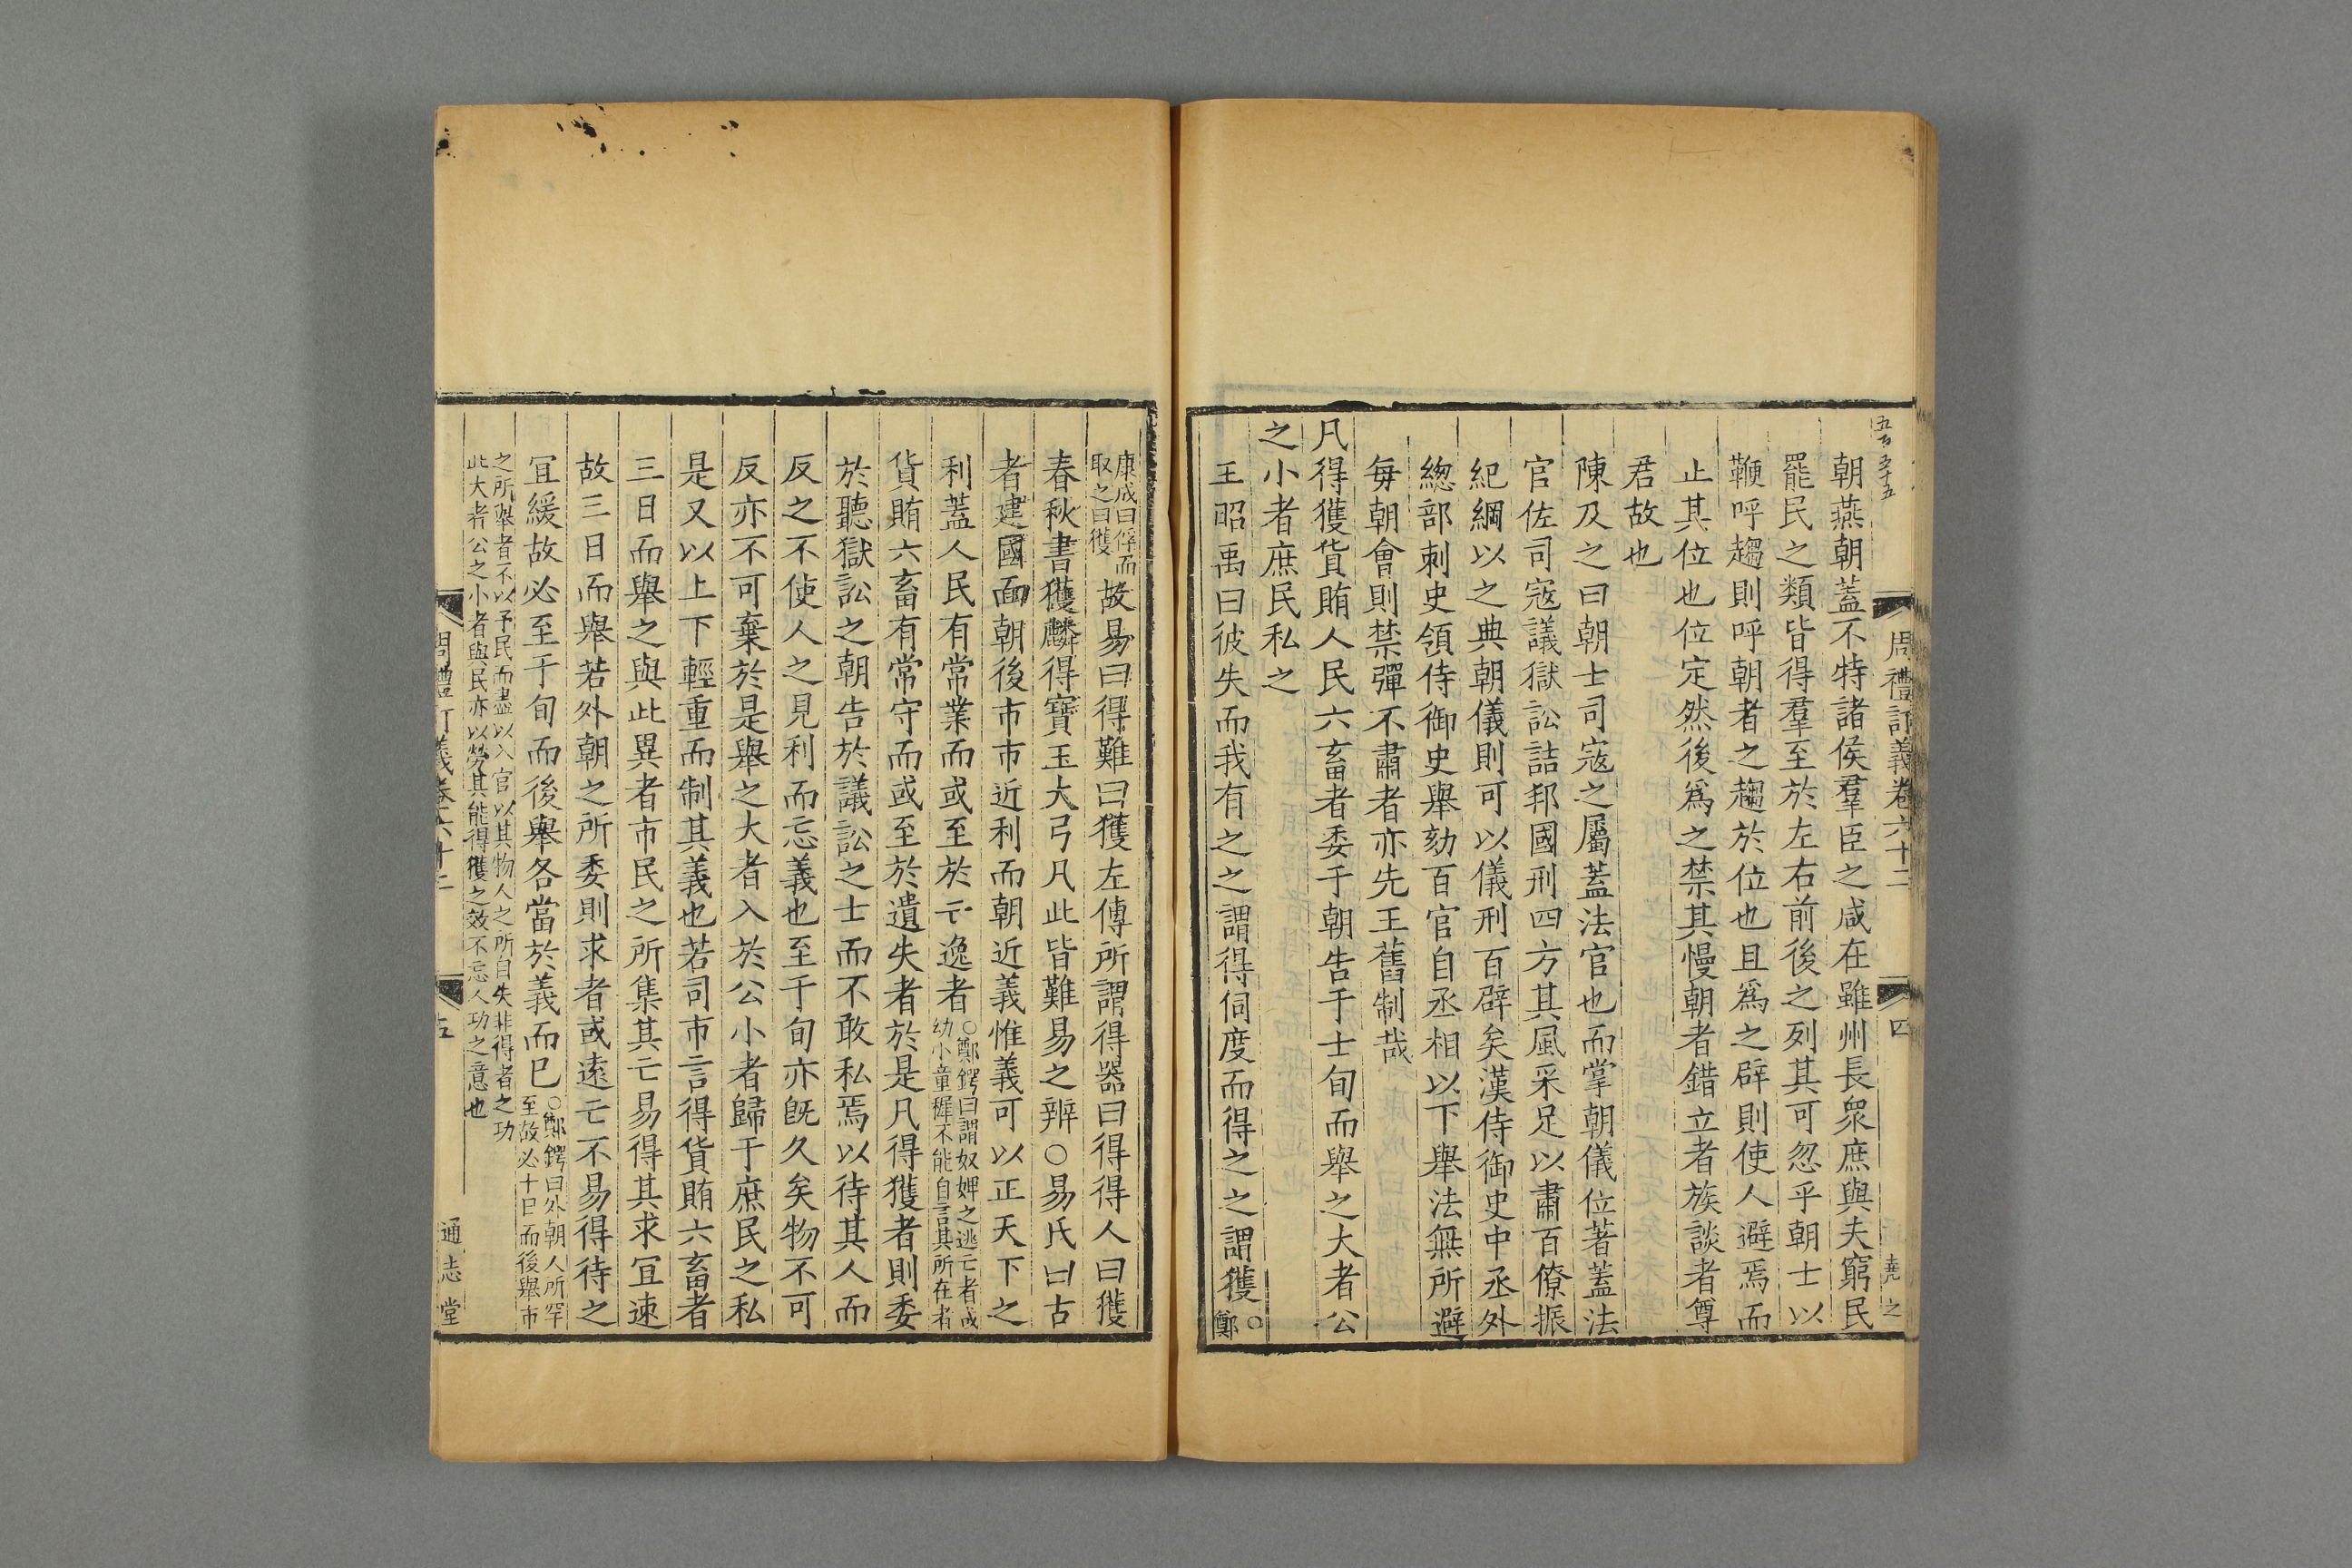 五百五十五
周禮訂義卷六十二
四
堯之
朝燕朝蓋不特諸侯羣臣之咸在雖州長衆庶與夫窮民
罷民之類皆得羣至於左右前後之列其可忽乎朝士以
鞭呼趨則呼朝者之趨於位也且爲之辟則使人避焉而
止其位也位定然後爲之禁其慢朝者錯立者族談者尊
君故也
陳及之曰朝士司宼之屬蓋法官也而掌朝儀位著蓋法
官佐司宼議獄訟詰邦國刑四方其風采足以肅百僚振
紀綱以之典朝儀則可以儀刑百辟矣漢侍御史中丞外
緫部刺史領侍御史舉劾百官自丞相以下舉法無所避
每朝會則禁彈不肅者亦先王舊制哉
凡得獲貨賄人民六畜者委于朝告于士旬而舉之大者公
之小者庶民私之
王昭禹曰彼失而我有之之謂得伺度而得之之謂獲○鄭
康成曰俘而
取之曰獲
故易曰得難曰獲左傳所謂得器曰得得人曰獲
春秋書獲麟得寶玉大弓凡此皆難易之辨○易氏曰古
者建國面朝後市市近利而朝近義惟義可以正天下之
利蓋人民有常業而或至於亡逸者
○鄭鍔曰謂奴婢之逃亡者或
幼小童穉不能自言其所在者
貨賄六畜有常守而或至於遺失者於是凡得獲者則委
於聽獄訟之朝告於議訟之士而不敢私焉以待其人而
反之不使人之見利而忘義也至于旬亦旣久矣物不可
反亦不可棄於是舉之大者入於公小者歸于庶民之私
是又以上下輕重而制其義也若司市言得貨賄六畜者
三日而舉之與此異者市民之所集其亡易得其求宜速
故三日而舉若外朝之所委則求者或遠亡不易得待之
宜緩故必至于旬而後舉各當於義而已
○鄭鍔曰外朝人所罕
至故必十日而後舉市
之所舉者不以予民而盡以入官以其物人之所自失非得者之功
此大者公之小者與民亦以勞其能得獲之效不忘人功之意也
周禮訂義卷六十二
五
通志堂